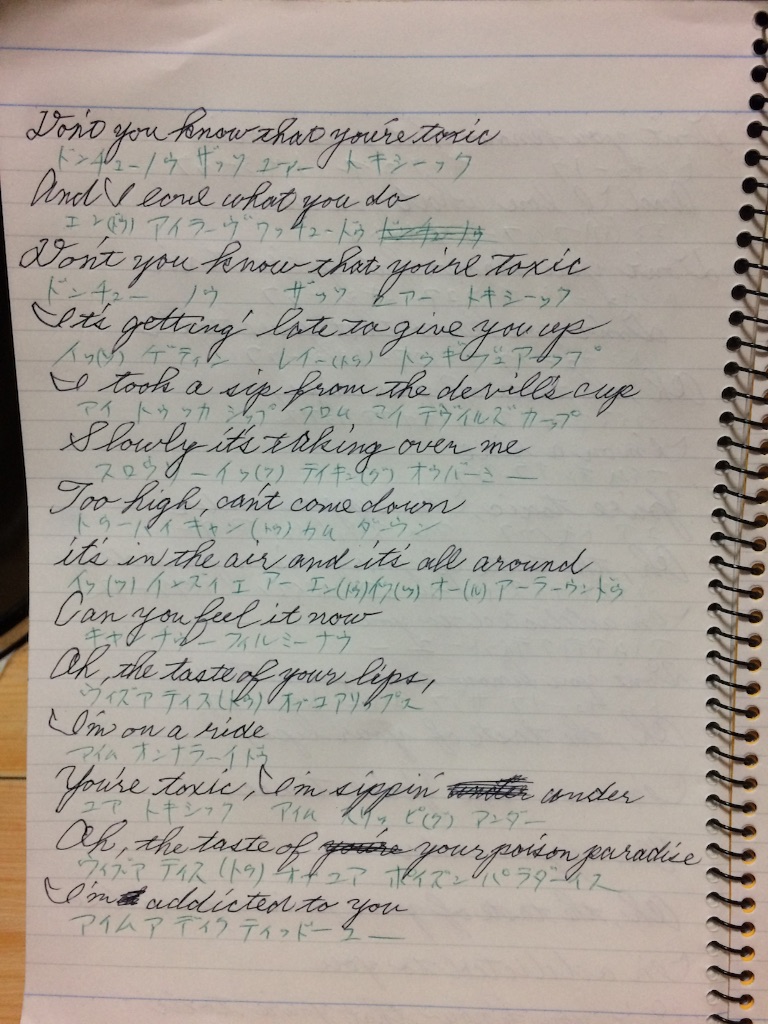 Don't you know that you're toxic
ドンチューノウ ザッツ ユアー トキシーック
And I love what you do
エン(ドゥ) アイラーヴ ワッチュードゥ
Don't you know that you're toxic
ドンチュー ノウ ザッツ ユアー トキシーック
It's getting' late to give you up
イッ(ツ) ゲティン レイー(トゥ) トゥギブュアーップ
I took a sip from the devill's cup
アイ トゥッカ シップ フロム マイ デヴイルズ カーップ
Slowly it's taking over me
スロウリー イッ(ツ) テイキン(グ) オウバーミー
Too high, can't come down
トゥーハイ キャン(トゥ) カム ダーウン
it's in the air and it's all around
イッ(ツ) インズイ エ アー エン(ドゥ)イッ(ツ) オー(ル) アーラーウンドゥ
Can you feel it now
キャンナュー フィルミーナウ
Oh, the taste of your lips,
ウィズア テイス(トゥ) オブユアリップス
I'm on a ride
アイム オンナラーイドゥ
You're toxic, I'm sippin' under
ユア トキシック アイム スリッピ(グ) アンダー
Oh, the taste of your poison paradise
ウィズア テイス (トゥ) オブユア ポイズン パラダーイス
I'm addicted to you
アイムア ディク ティッドーユー